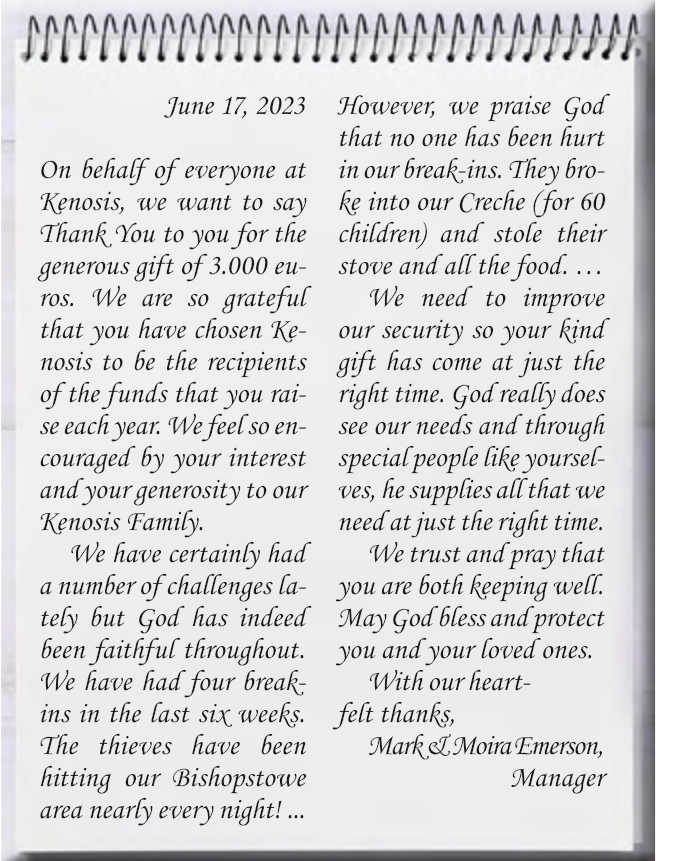 June 17, 2023
On behalf of everyone at
Kenosis, we want to say
Thank You to you for the
generous gift of 3.000 eu-
ros. We are so grateful
that you have chosen Ke-
nosis to be the recipients
of the funds that you rai-
se each year. We feel so en-
couraged by your interest
and your generosity to our
Kenosis Family.
We have certainly had
a number of challenges la-
tely but God has indeed
been faithful throughout.
We have had four break-
ins in the last six weeks.
The thieves have been
hitting our Bishopstowe
area nearly every night! ...
However, we praise God
that no one has been hurt
in our break-ins. They bro-
ke into our Creche (for 60
children) and stole their
stove and all the food. ...
We need to improve
our security so your kind
gift has come at just the
right time. God really does
see our needs and through
special people like yoursel-
ves, he supplies all that we
need at just the right time.
We trust and pray that
you are both keeping well.
May God bless and protect
you and your loved ones.
With our heart-
felt thanks,
Mark & Moira Emerson,
Manager